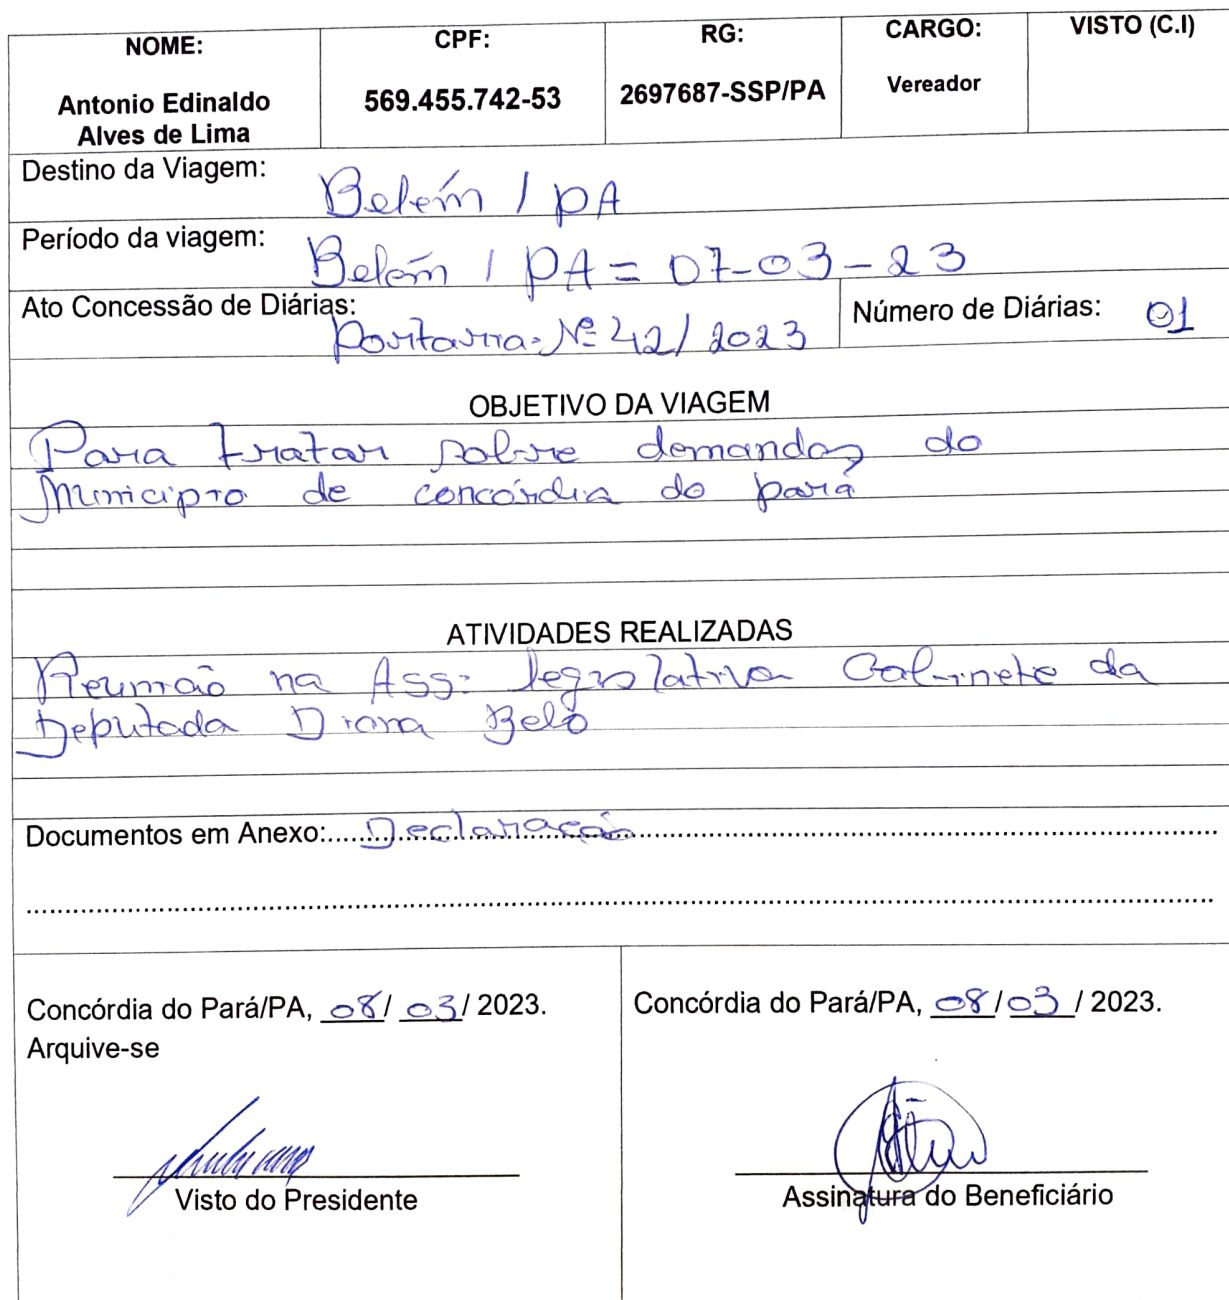 NOME: CPF: RG: CARGO: VISTO (C.I)
Antonio Edinaldo Alves de Lima 569.455.742-53 2697687-SSP/PA Vereador
Destino da Viagem: Belém / PA
Período da viagem: Belém / PA = 07-03-23
Ato Concessão de Diárias: Portaria: Nº 42/2023 Número de Diárias: 01
OBJETIVO DA VIAGEM
Para tratar sobre demandas do
Município de concórdia do pará
ATIVIDADES REALIZADAS
Reunião na Ass: legislativa Gabinete da
Deputada Diana Belo
Documentos em Anexo:.....Declaração.....
Concórdia do Pará/PA, 08/ 03/ 2023.
Arquive-se
Visto do Presidente
Concórdia do Pará/PA, 08/03 / 2023.
Assinatura do Beneficiário